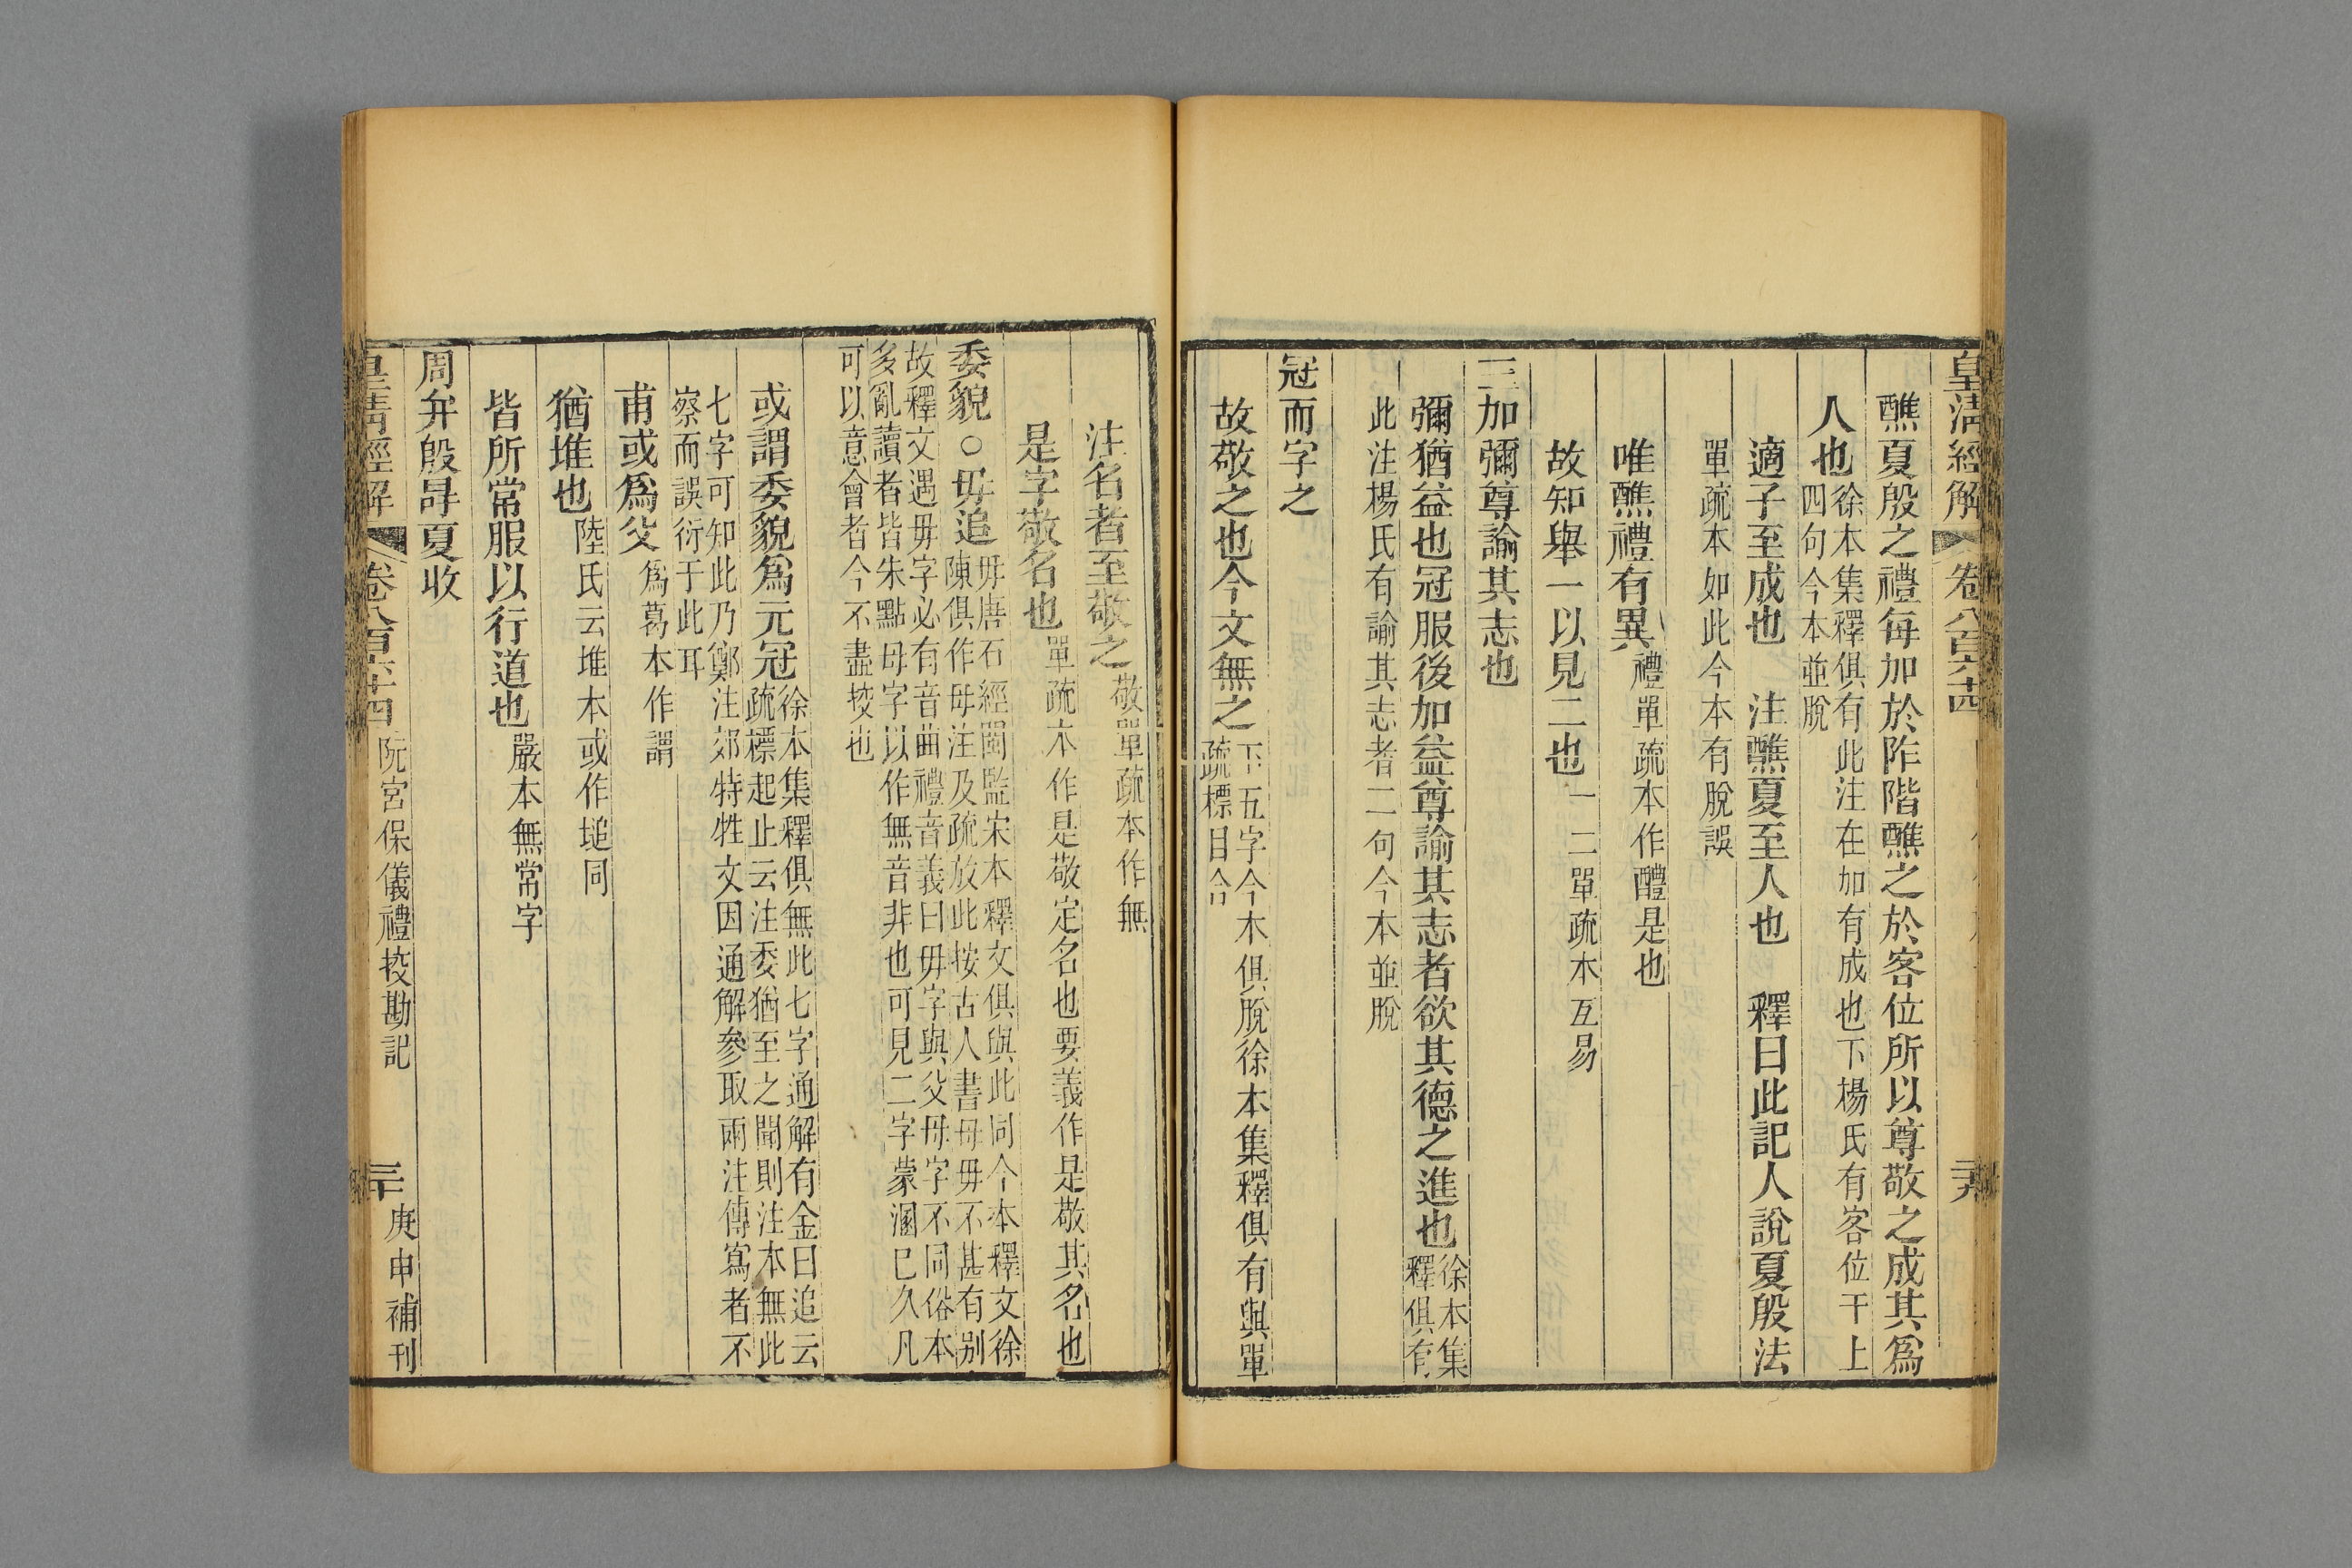 皇清經解 卷八百六十四
醮夏殷之禮每加於阼階醮之於客位所以尊敬之成其爲
人也徐本集釋俱有此注在加有成也下楊氏有客位干上
四句今本並脫
適子至成也 注醮夏至人也 釋曰此記人說夏殷法
單疏本如此今本有脫誤
唯醮禮有異禮單疏本作醴是也
故知舉一以見二也一二單疏本互易
三加彌尊諭其志也
彌猶益也冠服後加益尊諭其志者欲其德之進也徐本集
釋俱有
此注楊氏有諭其志者二句今本並脫
冠而字之
故敬之也今文無之下五字今本俱脫徐本集釋俱有與單
疏標目合
注名者至敬之敬單疏本作無
是字敬名也單疏本作是敬定名也要義作是敬其名也
委貌○毋追毋唐石經閩監宋本釋文俱與此同今本釋文徐
陳俱作母注及疏放此按古人書母毋不甚有别
故釋文遇毋字必有音曲禮音義曰毋字與父母字不同俗本
多亂讀者皆朱點母字以作無音非也可見二字蒙溷已久凡
可以意會者今不盡挍也
或謂委貌爲元冠徐本集釋俱無此七字通解有金曰追云
疏標起止云注委猶至之聞則注本無此
七字可知此乃鄭注郊特牲文因通解參取兩注傳寫者不
察而誤衍于此耳
甫或爲父爲葛本作謂
猶堆也陸氏云堆本或作塠同
皆所常服以行道也嚴本無常字
周弁殷冔夏收
皇清經解 卷八百六十四 阮宮保儀禮挍勘記 三十 庚申補刊